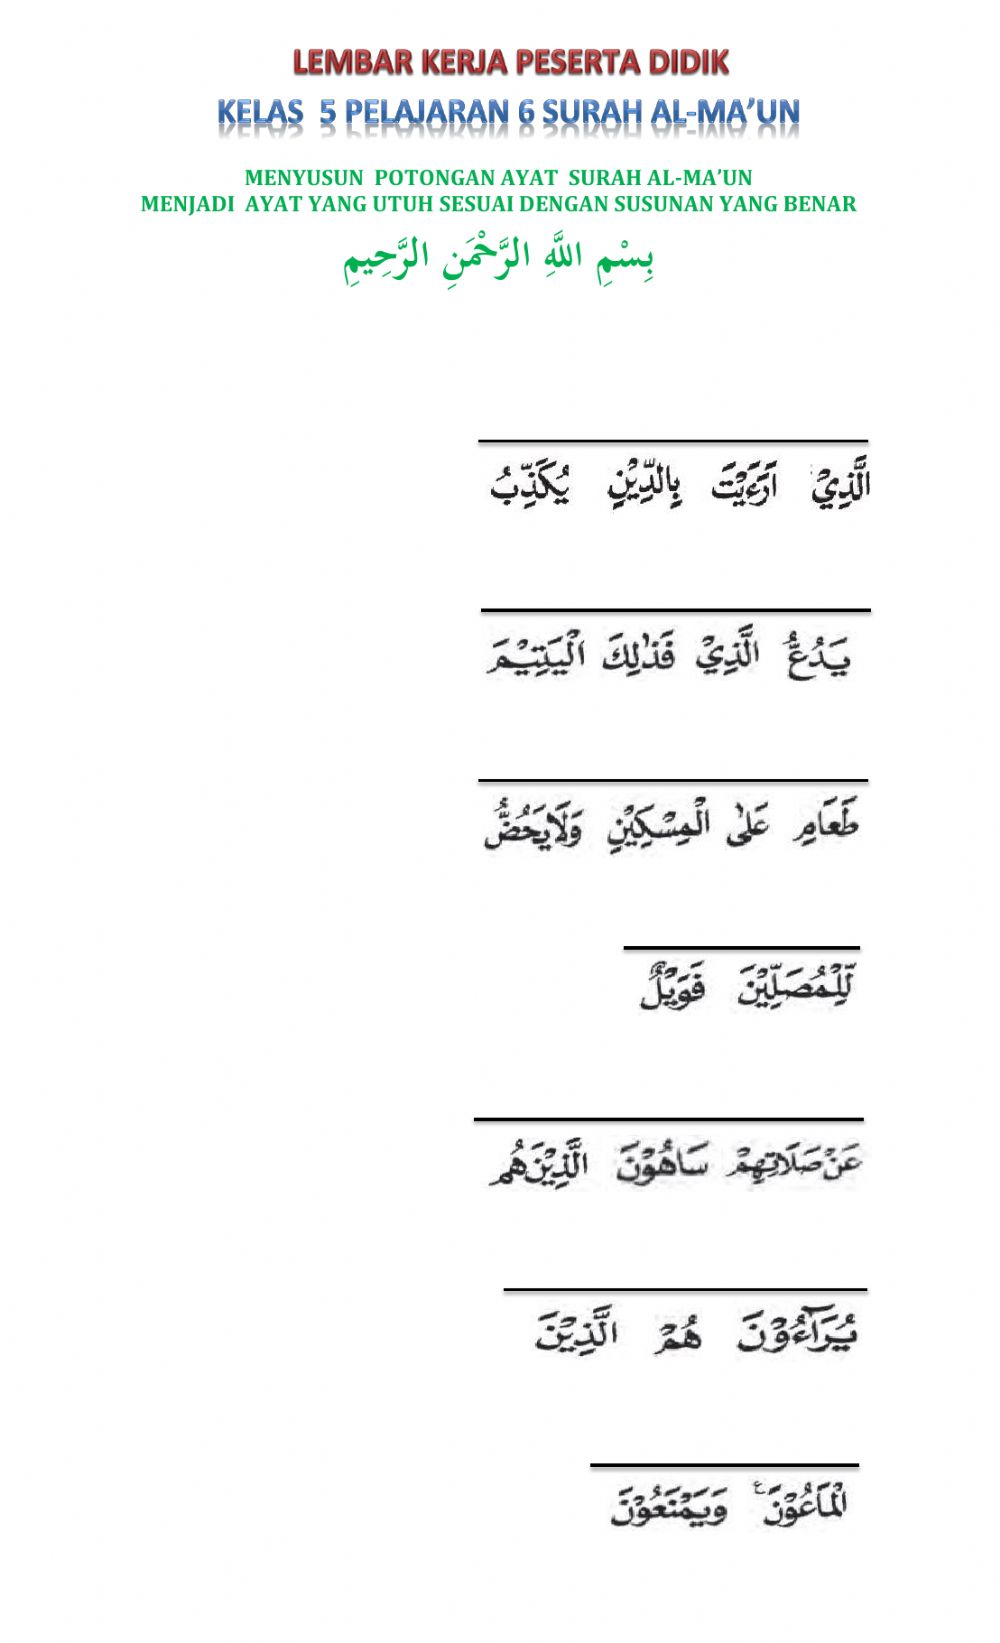 LEMBAR KERJA PESERTA DIDIK
KELAS 5 PELAJARAN 6 SURAH AL-MA’UN
MENYUSUN POTONGAN AYAT SURAH AL-MA’UN
MENJADI AYAT YANG UTUH SESUAI DENGAN SUSUNAN YANG BENAR
بِسْمِ اللَّهِ الرَّحْمَنِ الرَّحِيمِ
الَّذِيْ اَرَءَيْتَ بِالدِّيْنِ يُكَذِّبُ
يَدُعُّ الَّذِيْ فَذٰلِكَ الْيَتِيْمَ
طَعَامِ عَلٰى الْمِسْكِيْنِ وَلَا يَحُضُّ
لِّلْمُصَلِّيْنَ فَوَيْلٌ
عَنْ صَلَاتِهِمْ سَاهُوْنَ الَّذِيْنَ هُمْ
يُرَآءُوْنَ هُمْ الَّذِيْنَ
الْمَاعُوْنَ ۚ وَيَمْنَعُوْنَ